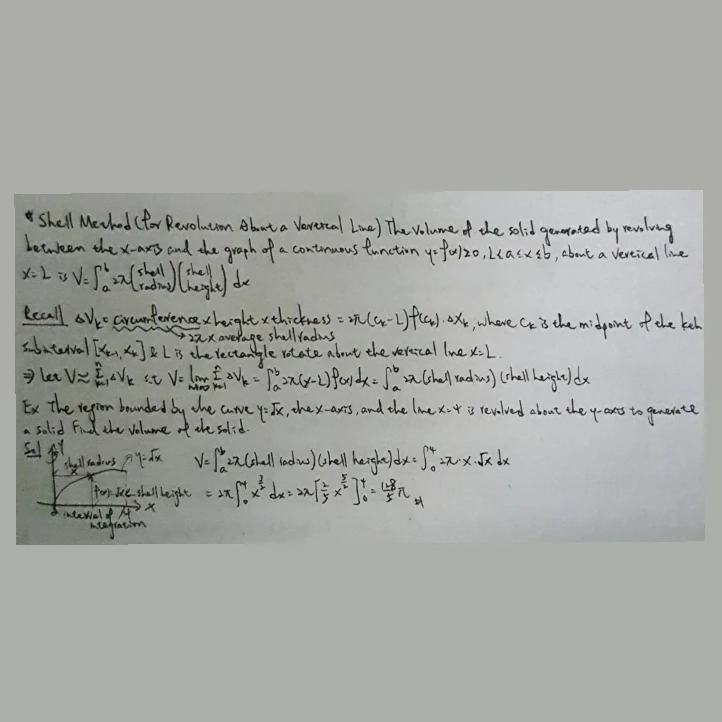 * Shell Method (for Revolution About a Vertical Line) The volume of the solid generated by revolving
between the x-axis and the graph of a continuous function y=f(x)≥0, L<a≤x≤b, about a vertical line
x=L is V=∫_a^b 2π(shell radius)(shell height) dx
Recall ΔV_k = circumference × height × thickness = 2π(c_k-L)f(c_k)·Δx_k, where c_k is the midpoint of the kth
→ 2π × average shell radius
subinterval [x_{k-1}, x_k] & L is the rectangle rotate about the vertical line x=L.
⇒ Let V≈ Σ_{k=1}^n ΔV_k s.t V= lim_{n→∞} Σ_{k=1}^n ΔV_k = ∫_a^b 2π(x-L)f(x)dx = ∫_a^b 2π(shell radius)(shell height)dx
Ex The region bounded by the curve y=√x, the x-axis, and the line x=4 is revolved about the y-axis to generate
a solid Find the volume of the solid.
Sol y
shell radius y=√x
f(x)=√x shell height
x
interval of
integration
4
V=∫_a^b 2π(shell radius)(shell height)dx=∫_0^4 2π·x·√x dx
=2π∫_0^4 x^{3/2} dx=2π[2/5 x^{5/2}]_0^4=128/5 π